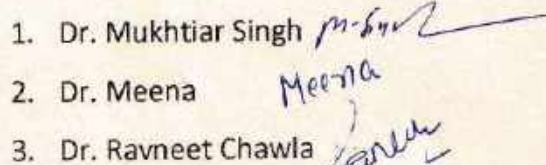 1. Dr. Mukhtiar Singh
2. Dr. Meena Meena
3. Dr. Ravneet Chawla